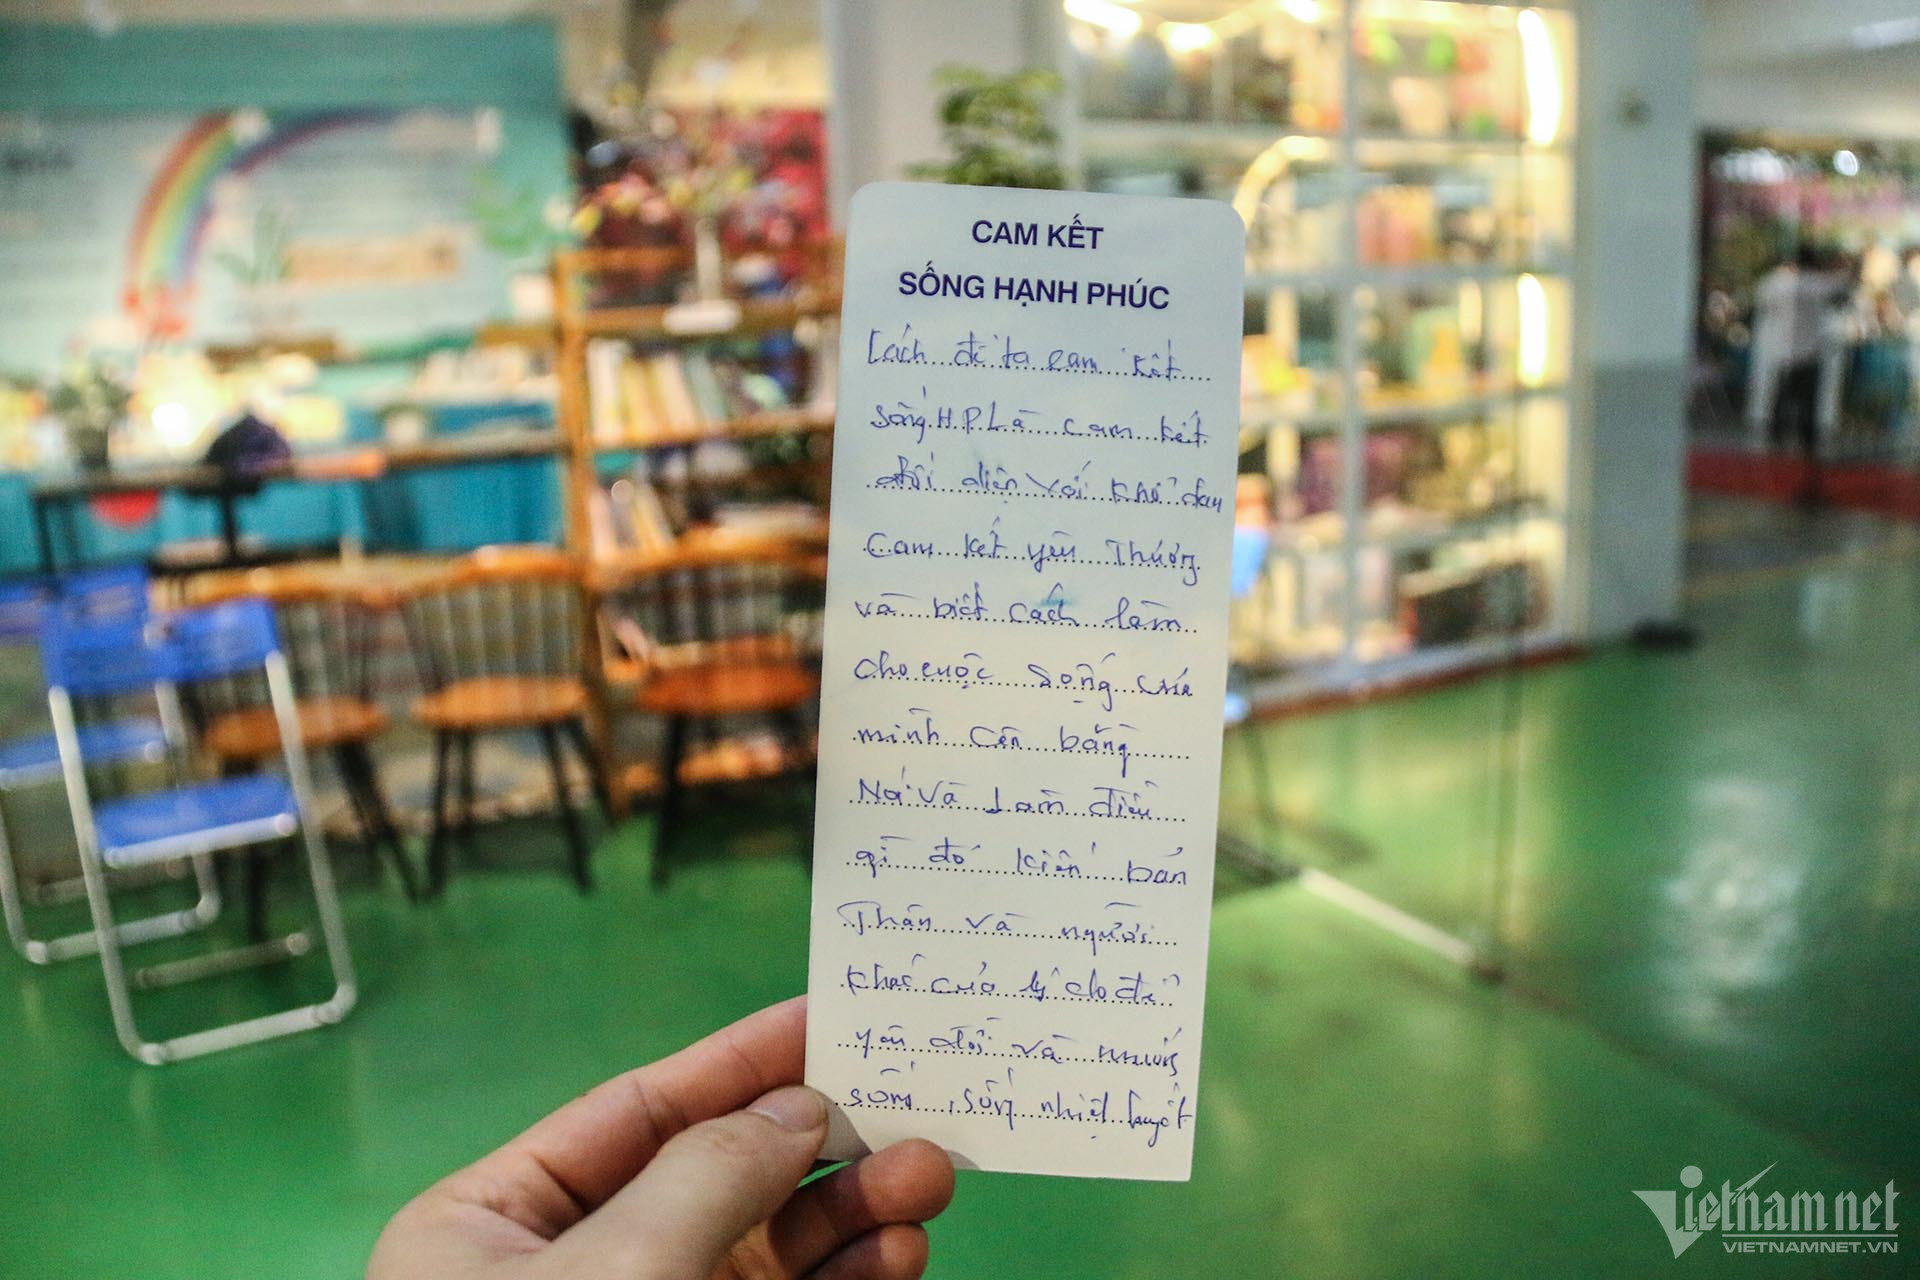 CAM KẾT
SỐNG HẠNH PHÚC
Cách để ta cam kết
sống H.P Là cam kết
đối diện với khổ đau
Cam kết yêu Thương
và biết cách làm
cho cuộc sống của
mình cân bằng
Nó và Làm điều
gì đó khiến bản
Thân và người
khác có lý do để
yêu đời và muốn
sống, sống nhiệt huyết
Vietnamnet
VIETNAMNET.VN